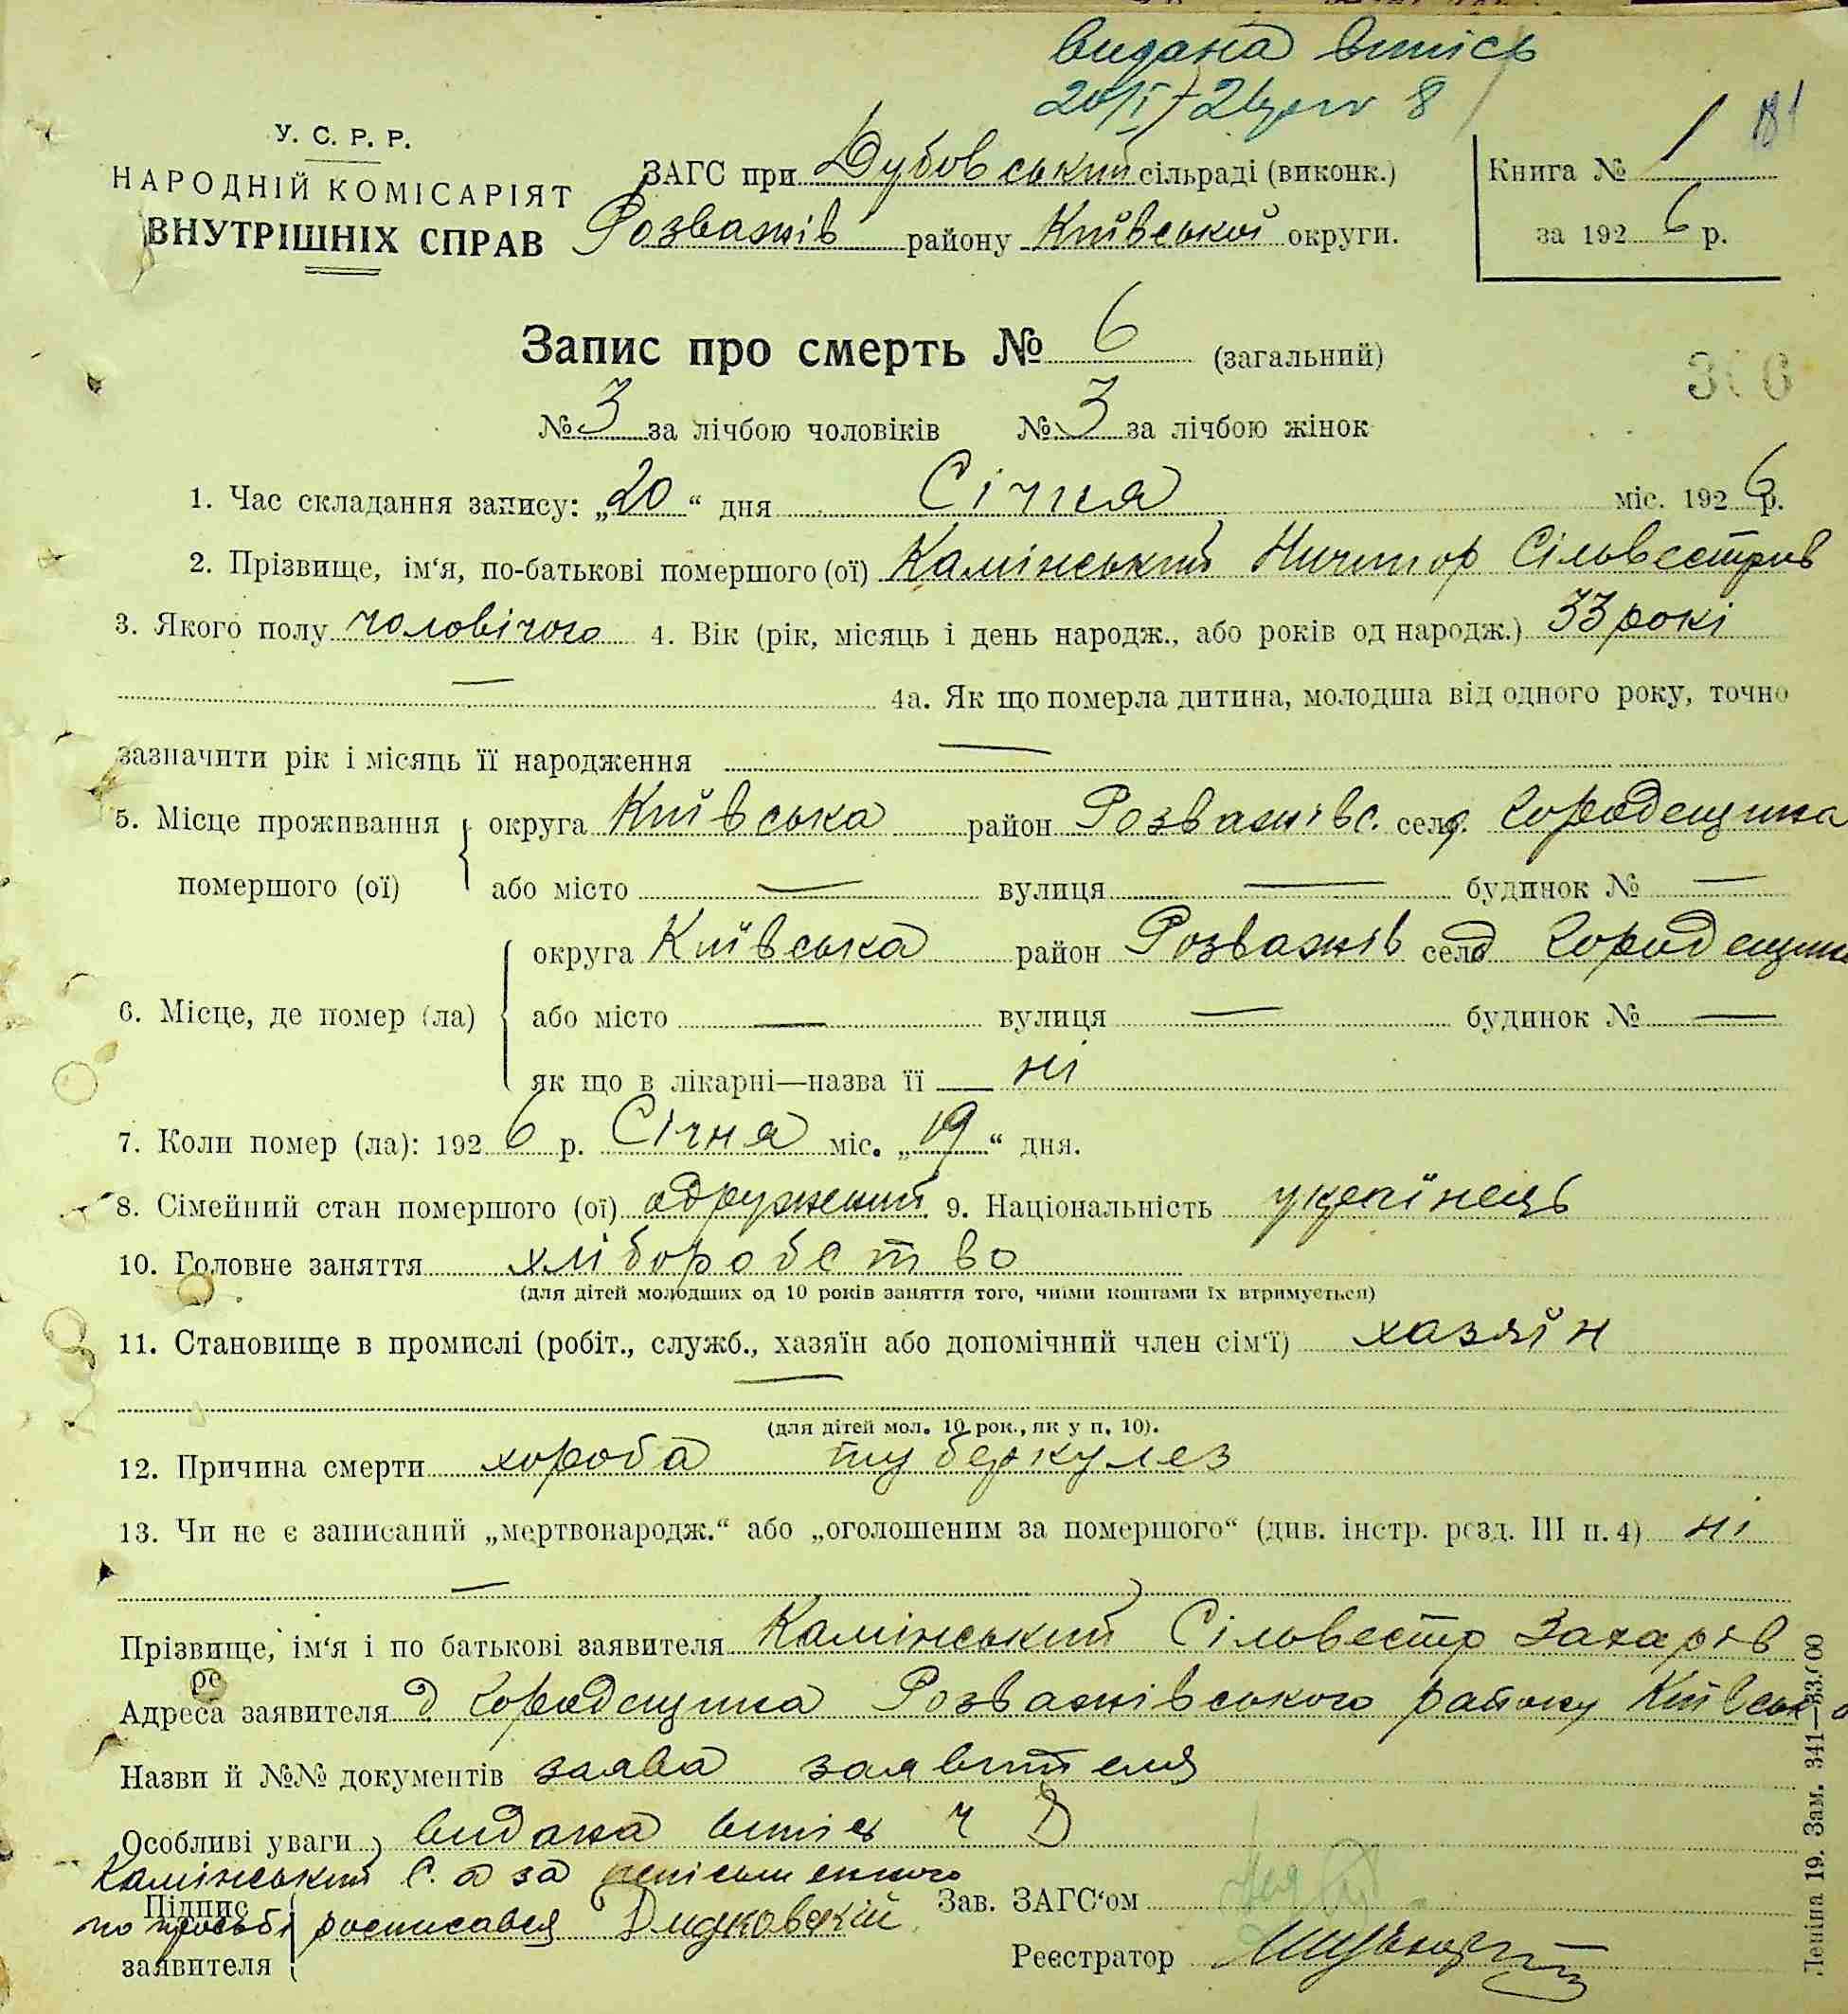 видана витісь
У. С. Р. Р.
НАРОДНІЙ КОМІСАРІЯТ
ВНУТРІШНІХ СПРАВ
ЗАГС при Дубовський сільраді (виконк.)
Розважів району Київської округи.
Книга № 1
за 1926 р.
Запис про смерть № 6 (загальний)
№ 3 за лічбою чоловіків № 3 за лічбою жінок
1. Час складання запису: „20“ дня Січня міс. 1926 р.
2. Прізвище, ім‘я, по-батькові помершого (ої) Камінський Ничипор Сільвестрів
3. Якого полу чоловічого 4. Вік (рік, місяць і день народж., або років од народж.) 33 рокі
— 4а. Як що померла дитина, молодша від одного року, точно
зазначити рік і місяць її народження —
5. Місце проживання помершого (ої) округа Київська район Розважівс. село Городещина
або місто — вулиця — будинок № —
6. Місце, де помер (ла) округа Київська район Розважів село Городещина
або місто — вулиця — будинок № —
як що в лікарні—назва її — ні
7. Коли помер (ла): 1926 р. Січня міс. „19“ дня.
8. Сімейний стан помершого (ої) одружений 9. Національність українець
10. Головне заняття хліборобство
(для дітей молодших од 10 років заняття того, чиїми коштами їх втримується)
11. Становище в промислі (робіт., служб., хазяїн або допомічний член сім‘ї) хазяїн
—
(для дітей мол. 10 рок., як у п. 10).
12. Причина смерти хороба туберкулез
13. Чи не є записаний „мертвонародж.“ або „оголошеним за помершого“ (див. інстр. розд. III п. 4) ні
—
Прізвище, ім‘я і по батькові заявителя Камінський Сільвестр Захарів
Адреса заявителя д. Городещина Розважівського району Київськ
Назви й №№ документів заява заявителя
Особливі уваги видана витісь ч 8
Камінський С. а за неписьменного
Підпис заявителя по просьбі росписався Дидковскій
Зав. ЗАГС‘ом
Реєстратор
Леніна 19. Зам. 341—33.000